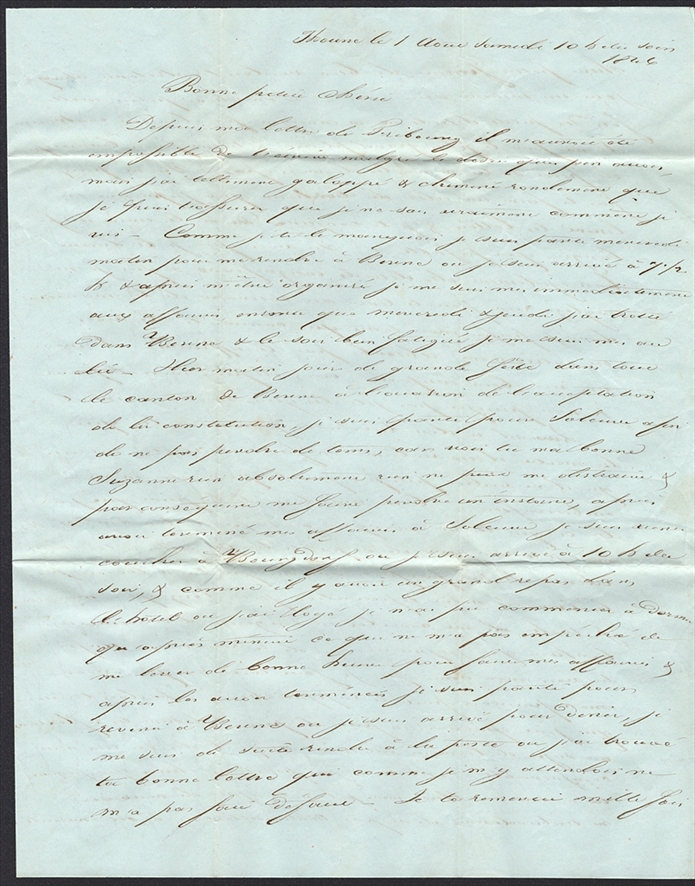 Thoune le 1 Aout Samedi 10 h du soir
1846
Bonne petite chérie
Depuis ma lettre de Fribourg il m'aurait été
impossible de t'écrire malgré le désir que j'en avais,
mais j'ai tellement galoppé & cheminé rondement que
je puis t'assurer que je ne sais vraiment comment je
vis - Comme je te le marquais je suis parti mercredi
matin pour me rendre à Berne où je suis arrivé à 7 1/2
h & après m'être organisé je me suis mis immédiatement
aux affaires, ensorte que mercredi & jeudi j'ai trotté
dans Berne & le soir bien fatigué je me suis mis au
lit - Hier matin jour de grande fête dans tout
le canton de Berne à l'occasion de l'acceptation
de la constitution, je suis parti pour Soleure afin
de ne pas perdre de tems, car vois tu ma bonne
Suzanne rien absolument rien ne peut me distraire &
par conséquent me faire perdre un instant, après
avoir terminé mes affaires à Soleure je suis venu
coucher à Bourgdorf où je suis arrivé à 10 h du
soir, & comme il y avait un grand repas dans
l'hotel où j'ai logé je n'ai pu commencer à dormir
qu'après minuit ce qui ne m'a pas empêché de
me lever de bonne heure pour faire mes affaires &
après les avoir terminées je suis parti pour
revenir à Berne où je suis arrivé pour diner, je
me suis de suite rendu à la poste où j'ai trouvé
ta bonne lettre qui comme je m'y attendais ne
m'a pas fait défaut - Je te remercie mille fois